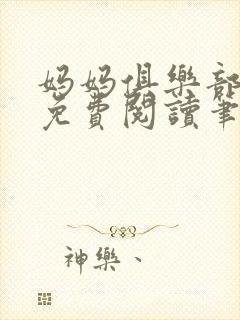 妈妈俱樂部
免費閱讀筆
神樂、